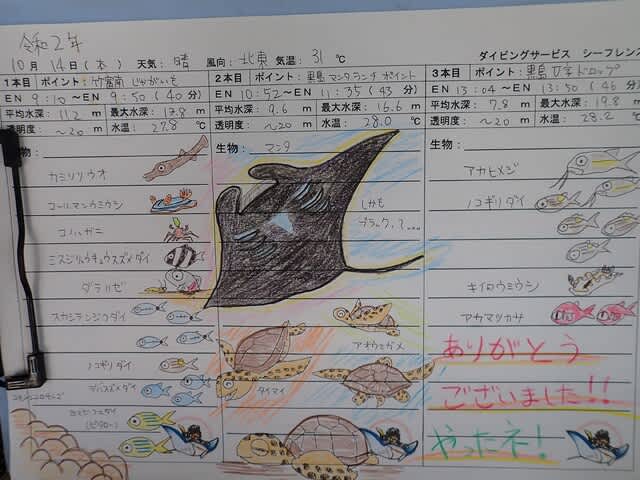 令和2年
10月 14日(木) 天気: 晴 風向: 北東 気温: 31 ℃
ダイビングサービス シーフレンズ
1本目 ポイント: 竹富南 じゃがいも
EN 9:10 〜EN 9:50 (40 分)
平均水深: 11.2 m 最大水深: 17.8 m
透明度: 〜20 m 水温: 27.8 ℃
生物:
カミソリウオ
コールマンウミウシ
コノハガニ
ミスジリュウキュウスズメダイ
ダテハゼ
スカシテンジクダイ
ノコギリダイ
デバスズメダイ
ヨスジフエダイ
(ビタロー)
2本目 ポイント: 黒島 マンタランチ ポイント
EN 10:52 〜EN 11:35 (43 分)
平均水深: 9.6 m 最大水深: 16.6 m
透明度: 〜20 m 水温: 28.0 ℃
生物: マンタ
しかも
ブラックって....
アオウミガメ
タイマイ
3本目 ポイント: 黒島 V字ドロップ
EN 13:04 〜EN 13:50 (46 分)
平均水深: 7.8 m 最大水深: 19.8 m
透明度: 〜20 m 水温: 28.2 ℃
生物:
アカヒメジ
ノコギリダイ
キイロウミウシ
アカマツカサ
ありがとう
ございました!!
やったネ!